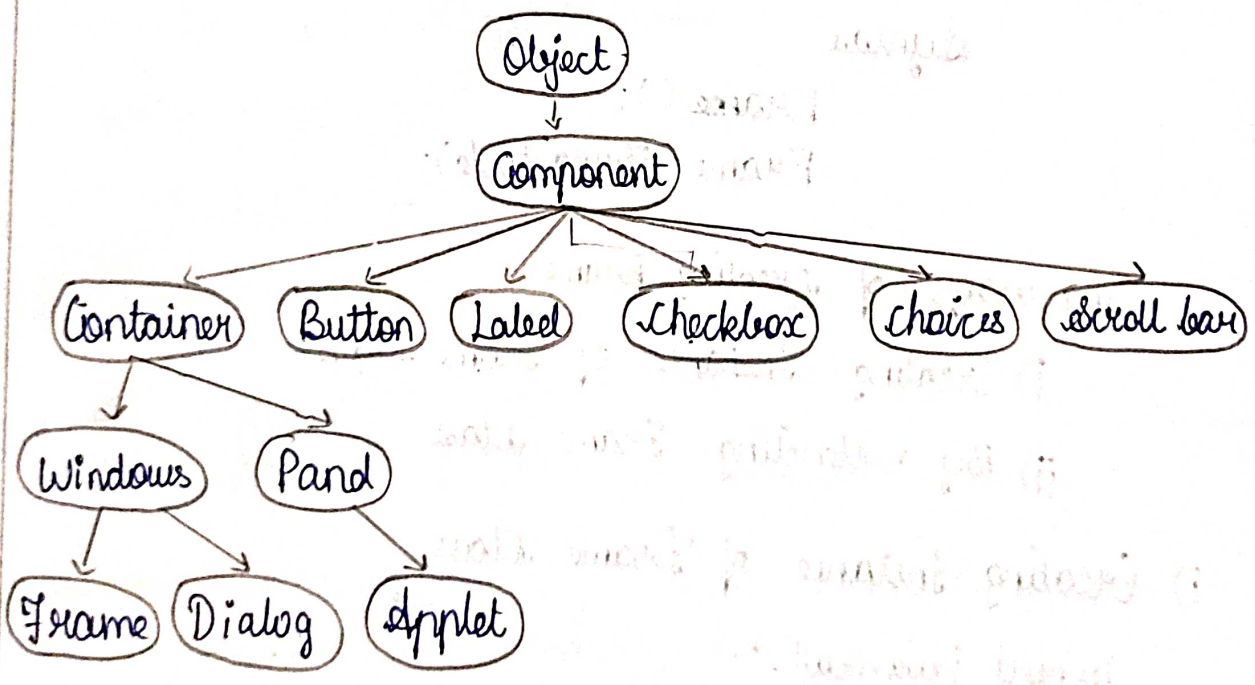 Object
Component
Container Button Label Checkbox choices Scroll bar
Windows Pand
Frame Dialog Applet